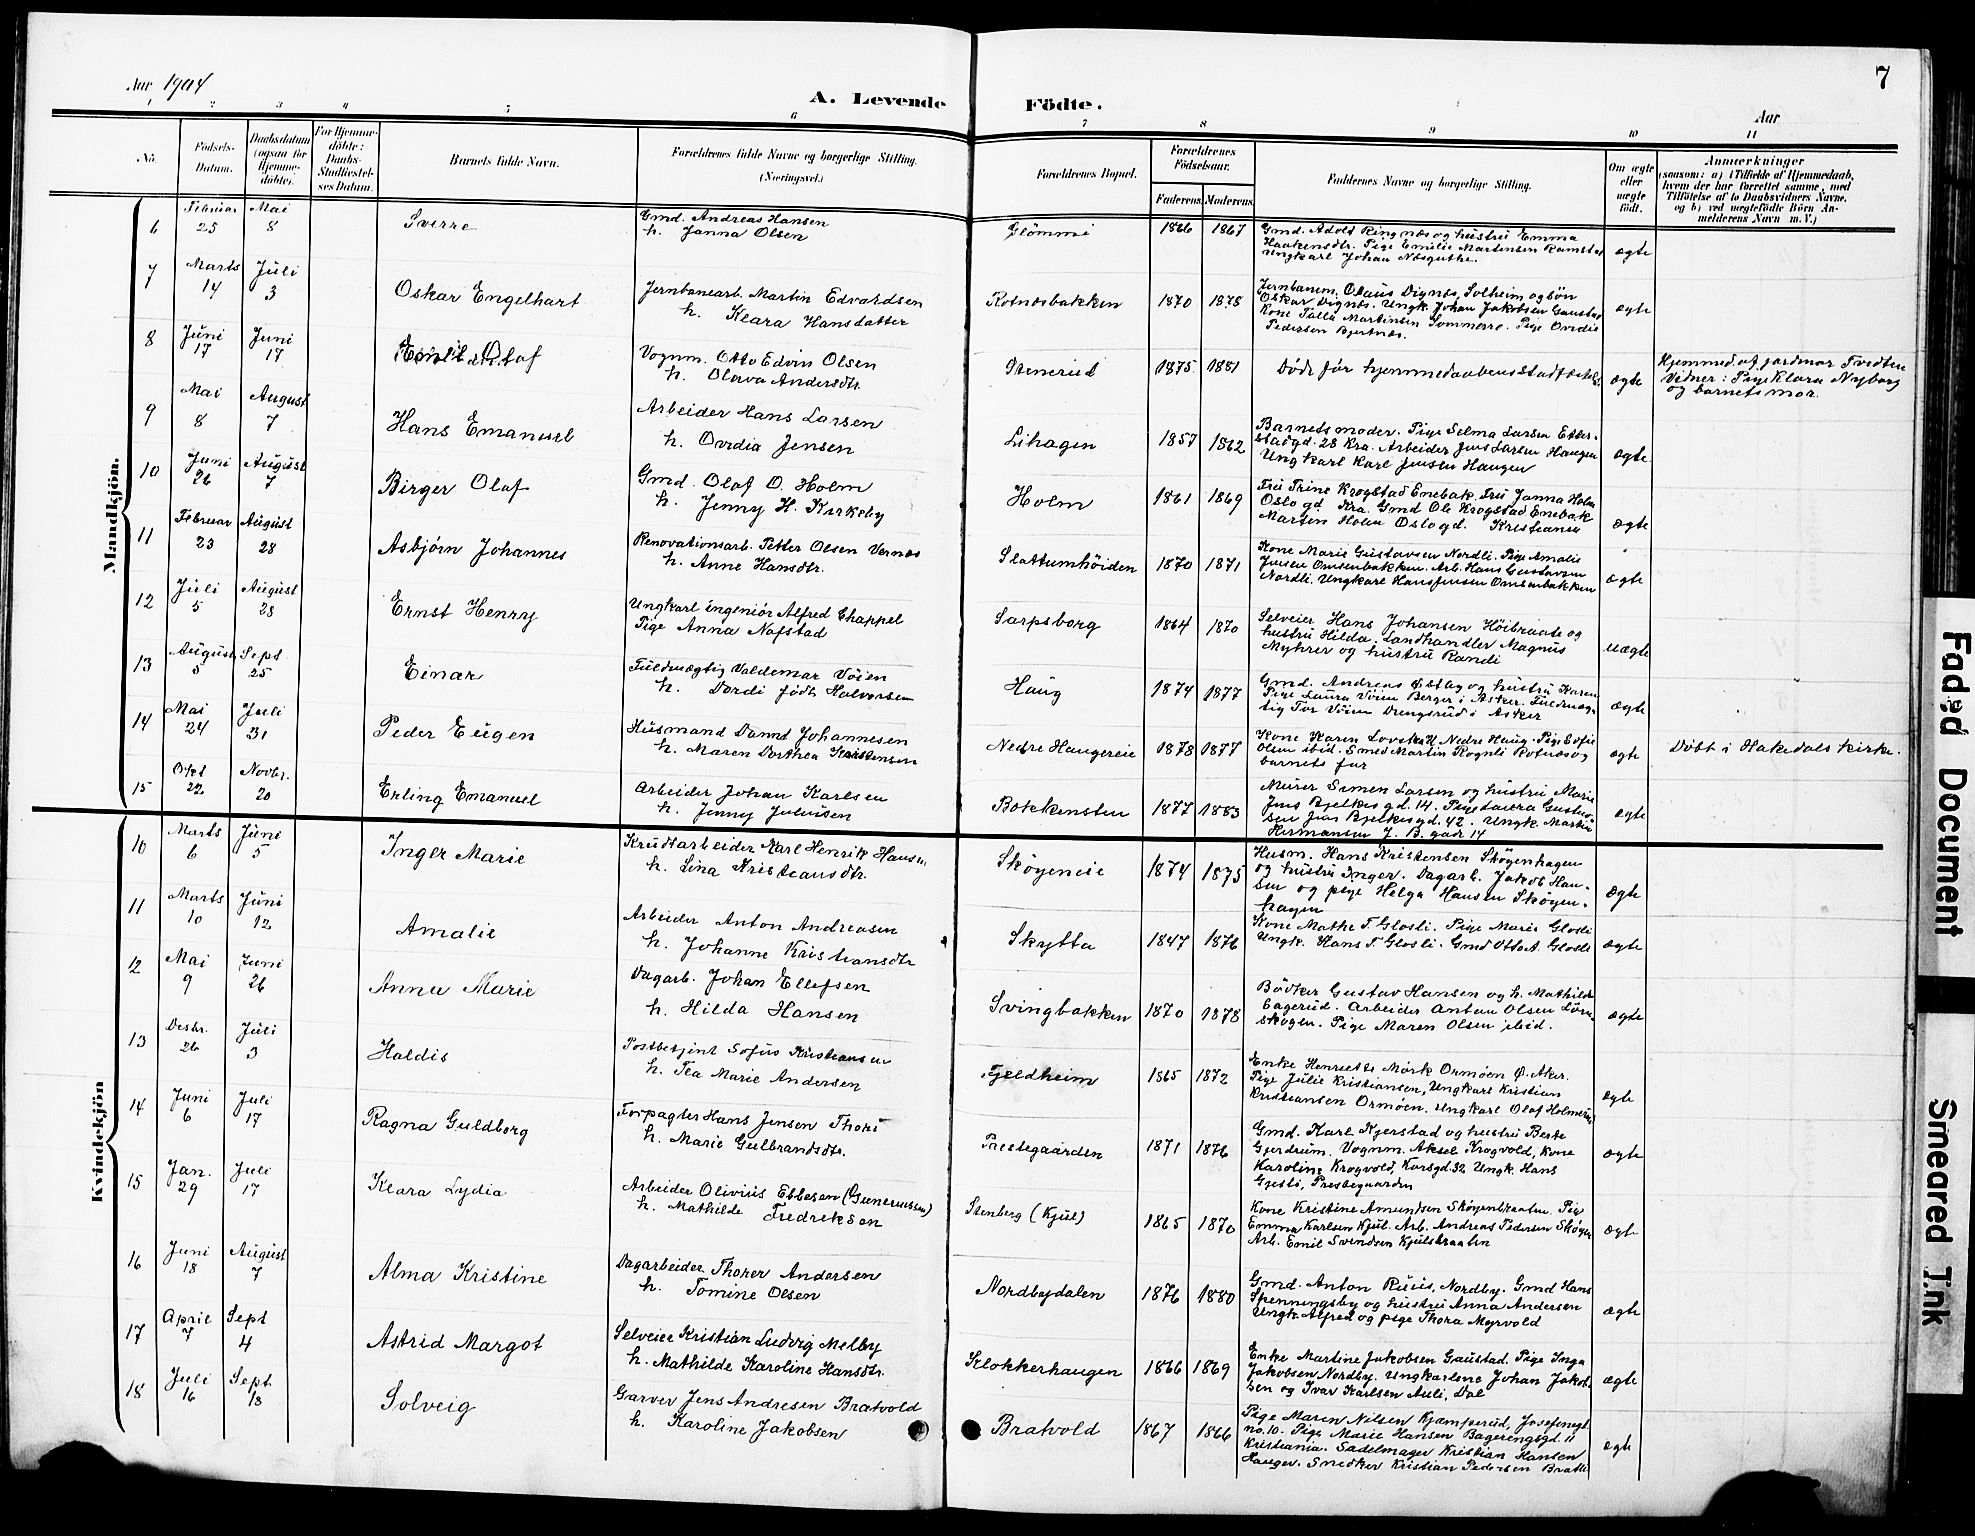 7
Aar 1904
A. Levende Födte.
Aar
1 2 3 4 5 6 7 8 9 10 11
No. Födsels-Datum. Daabsdatum (ogsaa for Hjemme-döbte). For Hjemme-döbte: Daabs-Stadfæstel-ses Datum. Barnets fulde Navn. Forældrenes fulde Navne og borgerlige Stilling. (Næringsvei.) Forældrenes Bopæl. Forældrenes Födselsaar. Faderens. Moderens. Faddernes Navne og borgerlige Stilling. Om ægte eller uægte födt. Anmærkninger (saasom: a) i Tilfælde af Hjemmedaab, hvem der har forrettet samme, med Tilföielse af to Daabsvidners Navne. og b) ved uægtefödte Börn An-melderens Navn m. V.)
Mandkjön.
6 Februar 25 Mai 8 Sverre Gmd. Andreas Hansen h. Janna Olsen Glømmi 1866 1867 Gmd. Adolf Ringnæs og hustru Emma
Haakensdtr. Pige Emilie Martinsen Ramstad
Ungkarl Johan Næsguthe. ægte
7 Marts 14 Juli 3 Oskar Engelhart Jernbanearb. Martin Edvardsen h. Klara Hansdatter Rotnæsbakken 1870 1878 Jernbanem. Olaus Dignæs, Solheim og søn
Oskar Dignæs. Ungk. Johan Jakobsen Gaustad
Kone Talla Martinsen Sommerro. Pige Ovidia
Pedersen Bjertnæs. ægte
8 Juni 17 Juni 17 Olaf Vognm. Otto Edvin Olsen h. Olava Andersdtr. Stenerud 1875 1881 Døde før hjemmedaabens stadfæstelse ægte Hjemmed. af jordmor Tvedten
Vidner: Pige Klara Nyborg
og barnets mor.
9 Mai 8 August 7 Hans Emanuel Arbeider Hans Larsen h. Ovidia Jensen Lihagen 1857 1862 Barnets moder. Pige Selma Larsen Etter-
stadgd. 28 Kra. Arbeider Jens Larsen Haugen
Ungkarl Karl Jensen Haugen ægte
10 Juni 26 August 7 Birger Olaf Gmd. Olaf O. Holm h. Jenny H. Kirkeby Holm 1861 1869 Fru Trine Krogstad Enebak. Fru Janna Holm
Oslo gd. Kra. Gmd Ole Krogstad Enebak
Marten Holm Oslo gd. Kristiania ægte
11 Februar 23 August 28 Asbjørn Johannes Renovationsarb. Petter Olsen Vernæs h. Anne Hansdtr. Slattumhöiden 1870 1871 Kone Marie Gustavsen Nordli. Pige Amalie
Jensen Omsenbakken. Arb. Hans Gustavsen
Nordli. Ungkarl Hans Jensen Omsenbakken ægte
12 Juli 5 August 28 Ernst Henry Ungkarl ingeniör Alfred Chappel Pige Anna Nafstad Sarpsborg 1864 1870 Selveier Hans Johansen Höibraate og
hustru Hilda. Landhandler Magnus
Myhrer og hustru Randi uægte
13 August 5 Sept. 25 Einar Fuldmægtig Valdemar Vöien h. Dordi födt Halvorsen Haug 1874 1877 Gmd. Andreas Østby og hustru Karen
Pige Laura Vöien Berger i Asker. Fuldmæg-
tig Tor Vöien Drengsrud i Asker ægte
14 Mai 24 Juli 31 Peder Eugen Husmand Johannesen h. Maren Dorthea Karstensen Nedre Haugereie 1878 1877 Kone Karen Nedre Haug. Pige Sofie
Olsen ibid. Smed Martin Rognli Rotnæs og
barnets far ægte Döbt i Hakedals kirke.
15 Okt 22 Novbr. 20 Erling Emanuel Arbeider Johan Karlsen h. Jenny Juliusen Bakkensten 1877 1883 Murer Simen Larsen og hustru Marie
Jens Bjelkes gd. 14. Pige Laura Gustav-
sen Jens Bjelkes gd. 42. Ungk. Martin
Hermansen J. B. gade 14 ægte
Kvindekjön
10 Marts 6 Juni 5 Inger Marie Krudtarbeider Karl Henrik Hansen h. Lina Kristiansdtr. Sköyeneie 1874 1875 Husm. Hans Kristensen Sköyenhagen
og hustru Inger. Dagarb. Jakob Han-
sen og pige Helga Hansen Sköyen-
hagen ægte
11 Marts 10 Juni 12 Amalie Arbeider Anton Andreasen h. Johanne Kristiansdtr Skytta 1847 1876 Kone Mathe T. Glosli. Pige Marie Glosli
Ungk. Hans T. Glosli. Gmd Otto A. Glosli ægte
12 Mai 9 Juni 26 Anna Marie Dagarb. Johan Ellefsen h. Hilda Hansen Svingbakken 1870 1878 Bödker Gustav Hansen og h. Mathilde
Bagerud. Arbeider Anton Olsen Lörn-
skogen. Pige Maren Olsen ibid. ægte
13 Desbr. 26 Juli 3 Haldis Postbetjent Sofus Kristiansen h. Tea Marie Andersen Fjeldheim 1865 1872 Enke Henriette Mörk Ormöen Ø. Aker.
Pige Julie Kristiansen, Ungkarl Kristian
Kristiansen Ormöen. Ungkarl Olaf ægte
14 Juni 6 Juli 17 Ragna Guldborg Forpagter Hans Jensen Thoni h. Marie Gulbrandsdtr. Prestegaarden 1871 1876 Gmd. Karl Kjerstad og hustru Berte
Gjerdrum. Vognm. Aksel Krogvold, Kone
Karoline Krogvold, Korsgd. 32 Ungk. Hans
Gjesli, Prestegaarden ægte
15 Jan. 29 Juli 17 Klara Lydia Arbeider Olivius Ebbesen (Gunerussen) h. Mathilde Fredriksen Stenberg (Kjul) 1865 1870 Kone Kristine Amundsen Sköyenbraaten. Pige
Emma Karlsen Kjul. Arb. Andreas Pedersen Sköyen
Arb. Emil Svendsen Kjulsbraaten ægte
16 Juni 18 August 7 Alma Kristine Dagarbeider Thorer Andersen h. Tomine Olsen Nordbydalen 1876 1880 Gmd. Anton Ruus, Nordby. Gmd Hans
Spenningsby og hustru Anna Andersen
Ungk. Alfred og pige Thora Myrvold ægte
17 April 7 Sept 4 Astrid Margot Selveier Kristian Ludvig Melby h. Mathilde Karoline Hansdtr. Klokkerhaugen 1866 1869 Enke Martine Jakobsen Gaustad. Pige Inga
Jakobsen Nordby. Ungkarlene Johan Jakob-
sen og Ivar Karlsen Auli, Dal ægte
18 Juli 16 Sept. 18 Solveig Garver Jens Andresen Bratvold h. Karoline Jakobsen Bratvold 1867 1866 Pige Maren Nilsen Kjæmperud, Josefinegt
no. 10. Pige Marie Hansen Bagerengsgd. 11
Kristiania. Sadelmager Kristian Hansen
Hauger. Snedker Kristian Pedersen Bratli ægte
Faded Document
Smeared Ink